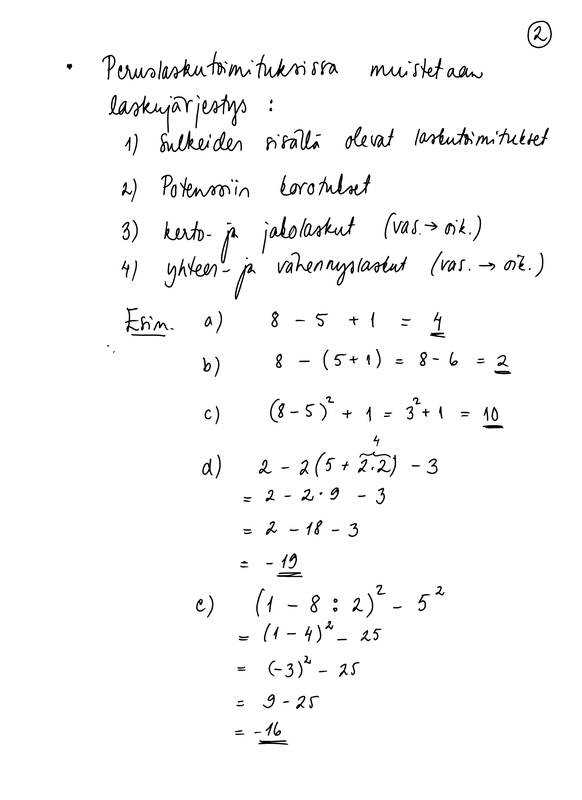 2
• Peruslaskutoimituksissa muistetaan
laskujärjestys :
1) Sulkeiden sisällä olevat laskutoimitukset
2) Potenssiin korotukset
3) kerto- ja jakolaskut (vas. → oik.)
4) yhteen- ja vähennyslaskut (vas. → oik.)
Esim. a) 8 - 5 + 1 = 4
b) 8 - (5+1) = 8 - 6 = 2
c) (8-5)² + 1 = 3² + 1 = 10
4
d) 2 - 2(5 + 2·2) - 3
= 2 - 2·9 - 3
= 2 - 18 - 3
= -19
e) (1 - 8 : 2)² - 5²
= (1 - 4)² - 25
= (-3)² - 25
= 9 - 25
= -16